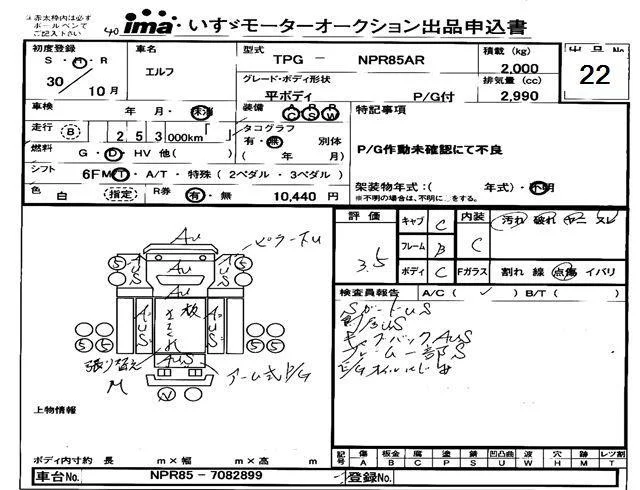 赤太枠内は必ず
ボールペンで
ご記入下さい
40 ima いすゞモーターオークション出品申込書
初度登録 車名 型式 TPG - NPR85AR 積載 (kg) 2,000 出品No
S・H・R エルフ グレード・ボディ形状 排気量 (cc) 22
30 10月 平ボディ P/G付 2,990
車検 年 月・抹消 装備 AC PS PW 特記事項
走行 B 2 5 3 000km タコグラフ
有・無 別体 P/G作動未確認にて不良
燃料 G・D・HV 他( ) ( 年 月)
シフト 6F MT・A/T・特殊 (2ペダル・3ペダル) 架装物年式:( 年式)・不明
色 白 (指定) R券 有・無 10,440 円 ※不明の場合は、不明に○をする。
評価 キャブ C 内装 汚れ 破れ ヤニ スレ
3.5 フレーム B C
ボディ C Fガラス 割れ 線 点傷 イバリ
検査員報告 A/C ( ✓ ) B/T ( )
AU ピラーTU
AU
AU
AUS
AUS
AUS
AUS
板
5 5
5 5
張り替え
M
AUS
アーム式P/G
キャブバックAUS
フレーム一部S
上物情報
ボディ内寸約 長 m×幅 m×高 m
記号 傷 板金 腐 塗 錆 凹凸曲 波 穴 跡 レツ割
A B C P S U W H M T
車台No. NPR85 - 7082899 登録No.